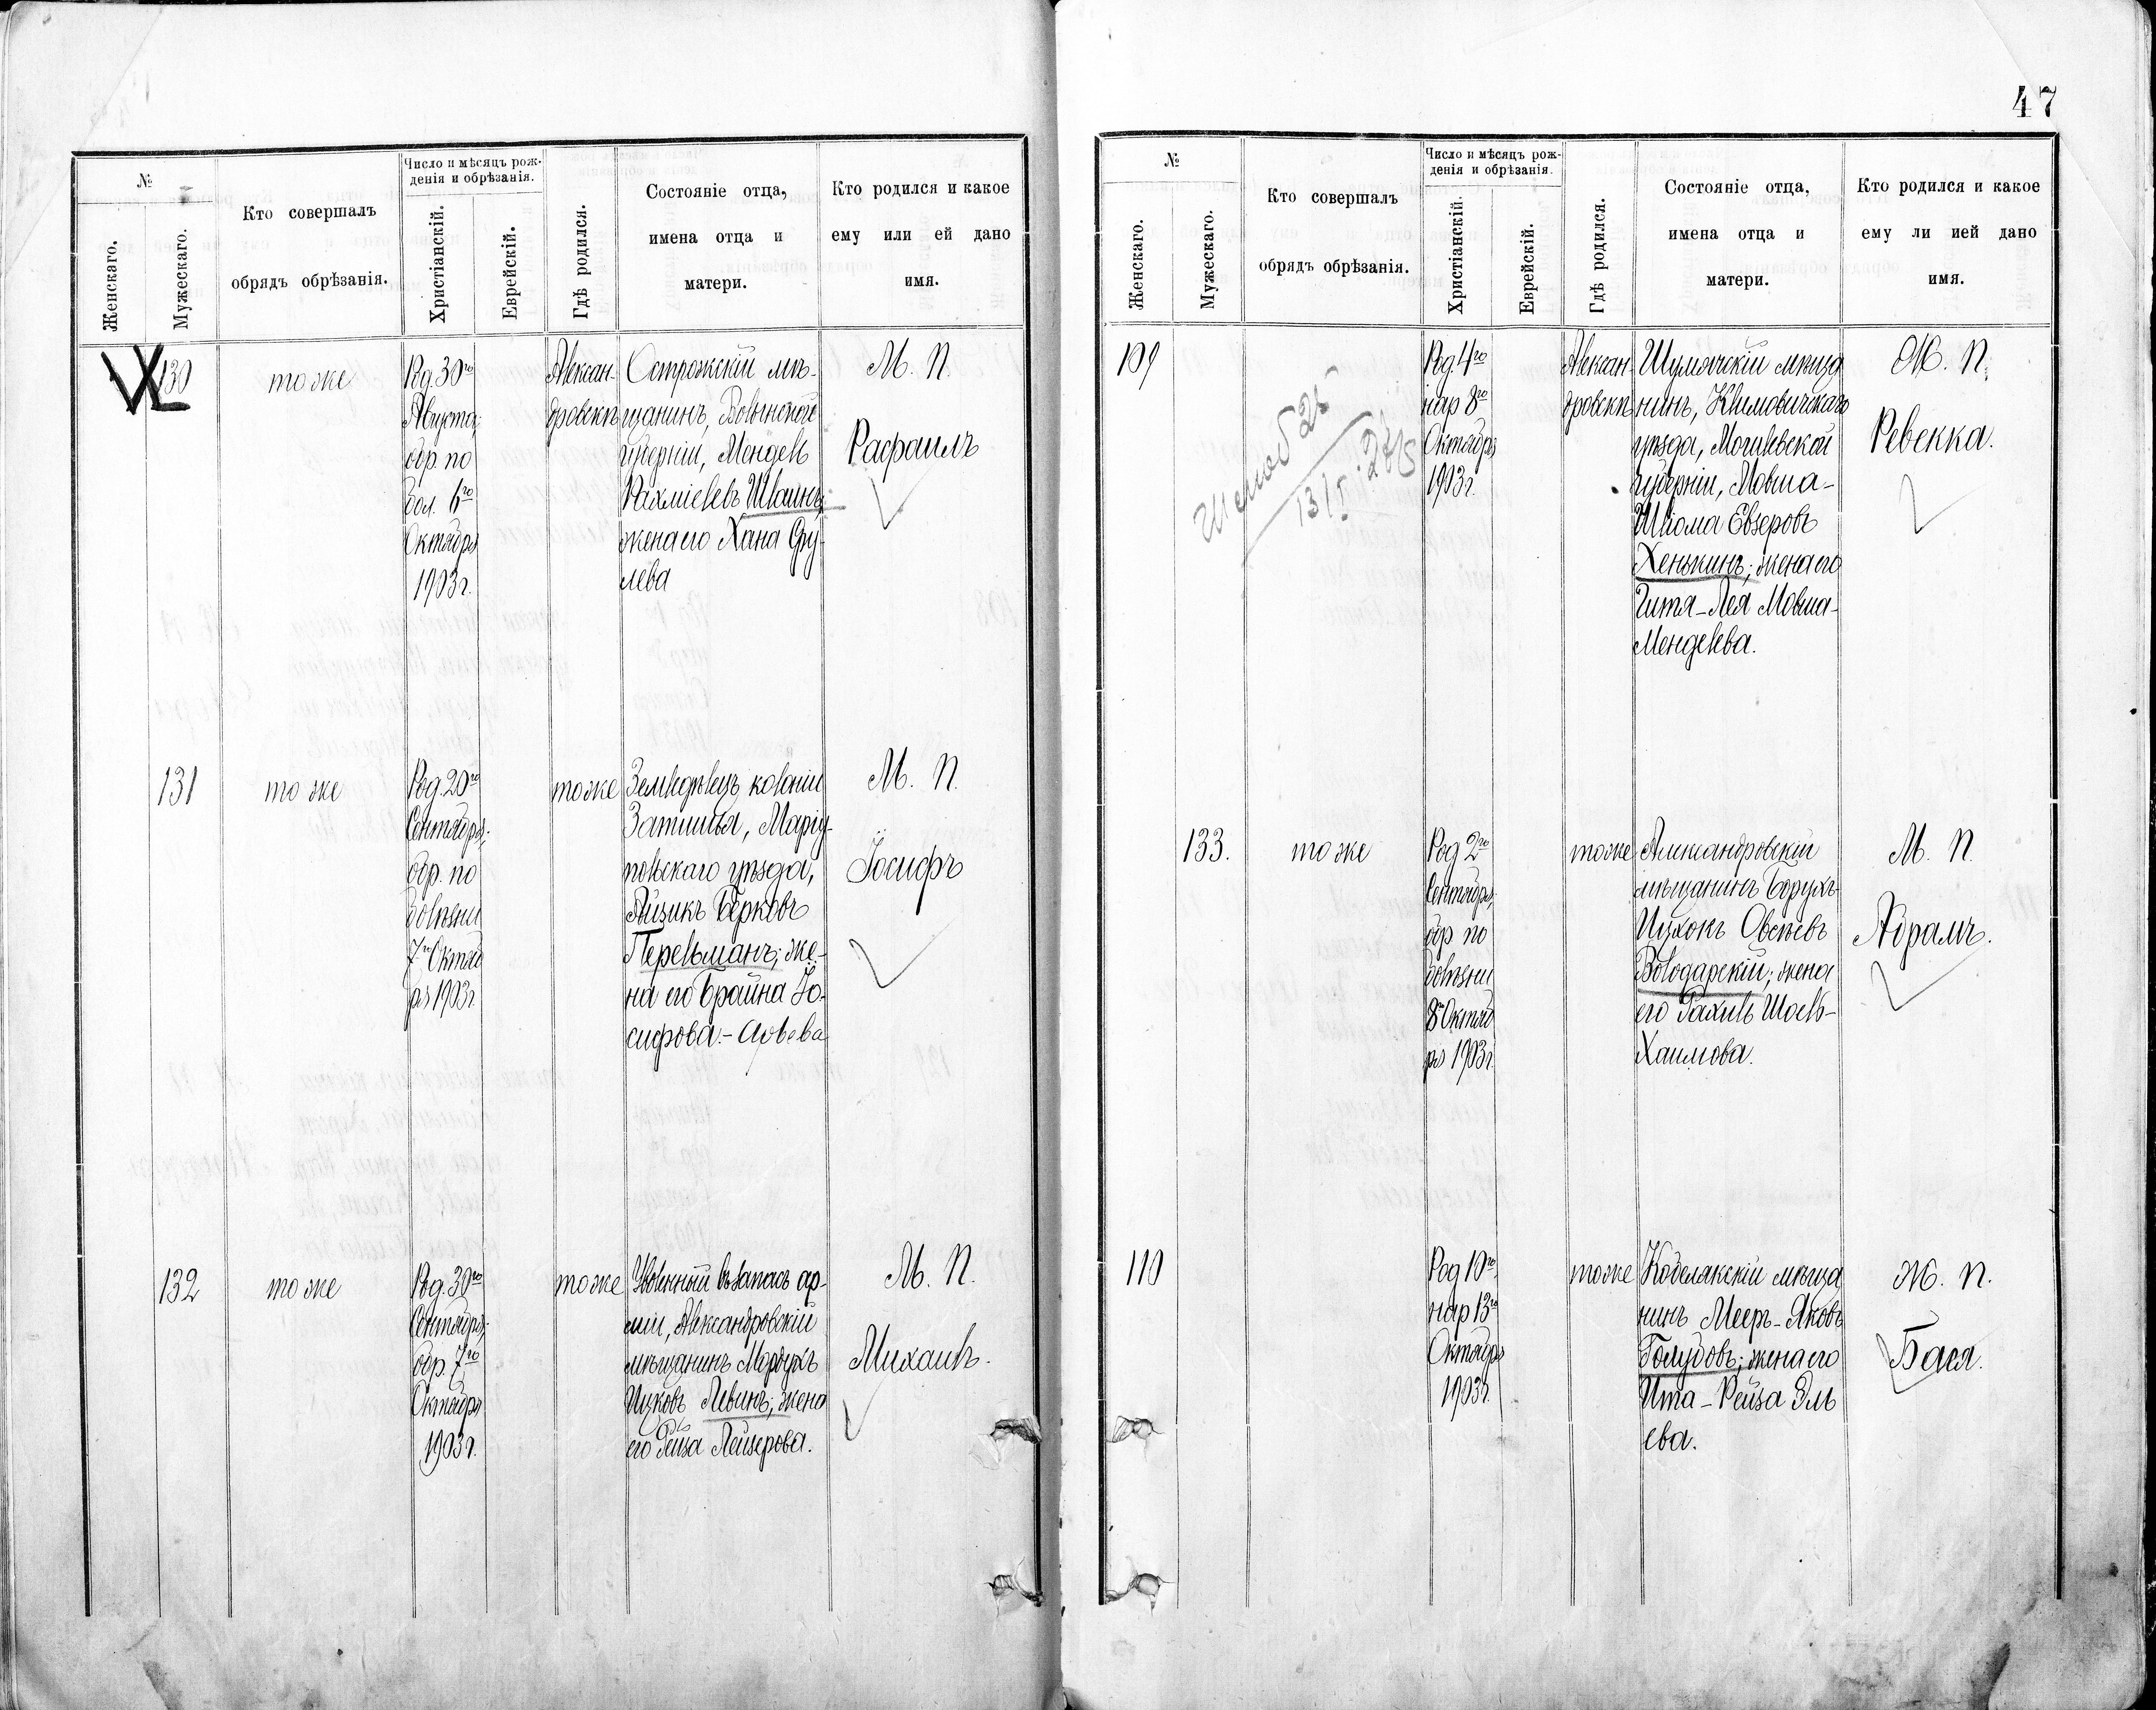 47
№
Женскаго.
Мужескаго.
Кто совершалъ
обрядъ обрѣзанія.
Число и мѣсяцъ рож-
денія и обрѣзанія.
Христіанскій.
Еврейскій.
Гдѣ родился.
Состояніе отца,
имена отца и
матери.
Кто родился и какое
ему или ей дано
имя.
130
то же
Род. 30го
Августа;
обр. по
бол. 6го
Октября
1903 г.
Алексан-
дровскѣ
Острожскій мѣ-
щанинъ, Волынской
губерніи, Мендель
Рахміелевъ Шваинъ,
жена его Хана Сру-
лева
М. П.
Рафаилъ
131
то же
Род. 20го
Сентября;
обр. по
болѣзни
7го Октяб
ря 1903 г.
то же
Земледѣлецъ колоніи
Затишья, Маріу-
польскаго уѣзда,
Айзикъ Берковъ
Перельманъ; же-
на его Брайна Іо-
сифова-Арьева
М. П.
Іосифъ
132
то же
Род. 30го
Сентября;
обр. 7го
Октября
1903 г.
то же
Уволенный въ запасъ ар-
міи, Александровскій
мѣщанинъ Мордухъ
Ицковъ Левинъ; жена
его Рейза Лейзерова.
М. П.
Михаилъ.
№
Женскаго.
Мужескаго.
Кто совершалъ
обрядъ обрѣзанія.
Число и мѣсяцъ рож-
денія и обрѣзанія.
Христіанскій.
Еврейскій.
Гдѣ родился.
Состояніе отца,
имена отца и
матери.
Кто родился и какое
ему ли ией дано
имя.
109
Род. 4го
нар 8го
Октября
1903 г.
Алексан-
дровскѣ
Шумячскій мѣща
нинъ, Климовичскаго
уѣзда, Могилевской
губерніи, Мовша-
Шлома Евзеровъ
Хенькинъ; жена его
Гитя-Лея Мовша-
Менделева.
Ж. П.
Ревекка.
133.
то же
Род 2го
Сентября;
обр по
болѣзни
8го Октяб
ря 1903 г.
то же
Александровскій
мѣщанинъ Борухъ-
Ицхокъ Овсѣевъ
Володарскій; жена
его Рахиль Шоель-
Хаимова.
М. П.
Абрамъ.
110
Род 10го,
нар 13го
Октября
1903 г.
то же
Кобелякскій мѣща
нинъ Мееръ-Яковъ
Голубовъ; жена его
Ита-Рейза Эль
ева.
Ж. П.
Бася.